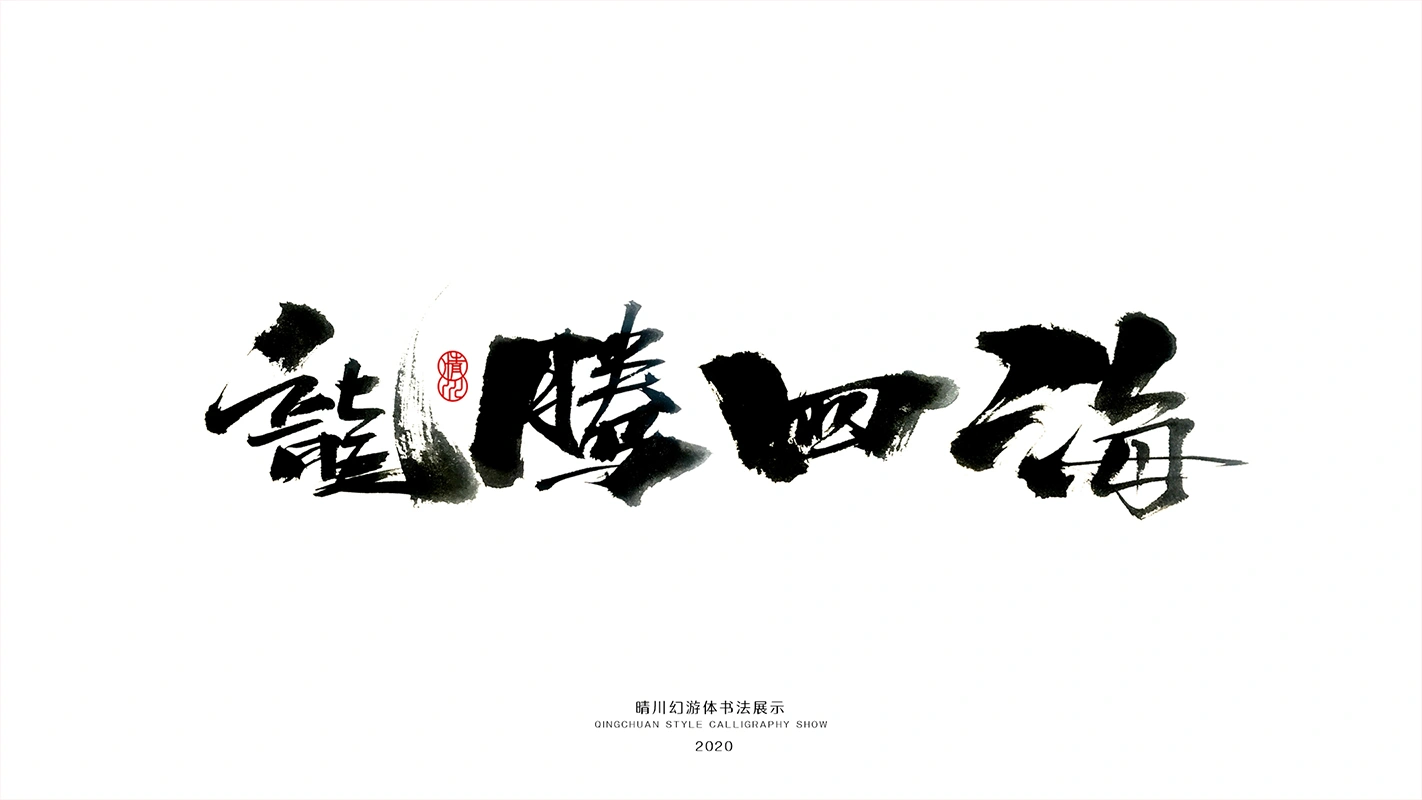 龍騰四海
晴川
晴川幻游体书法展示
QINGCHUAN STYLE CALLIGRAPHY SHOW
2020